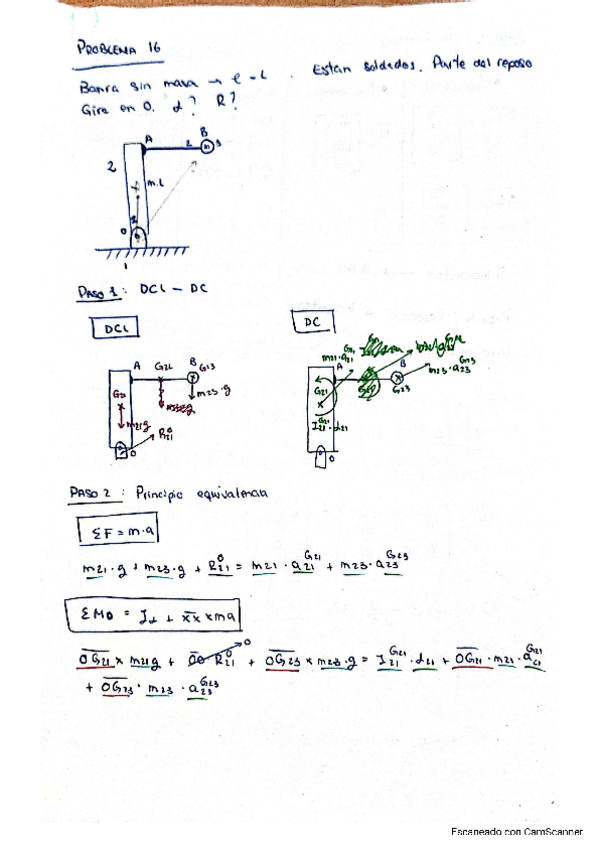 PROBLEMA 16
Barra sin masa → l = L . Están soldados. Parte del reposo
Gira en O. α? R?
B
A 2 m 3
2 m.L
O
1
PASO 1: DCL - DC
DCL DC
A G22 B G23
G21 m23·g
m21g R21 O
O
m21·a21 G21 A B m23·a23 G23
G21 G23
I21 G21·α21
O
PASO 2: Principio equivalencia
ΣF = m·a
m21·g + m23·g + R21 O = m21·a21 G21 + m23·a23 G23
ΣMO = Iα + XX x ma
OG21 x m21g + OO R21 O → 0 + OG23 x m23·g = I21 G21·α21 + OG21·m21·a21 G21
+ OG23·m23·a23 G23
Escaneado con CamScanner